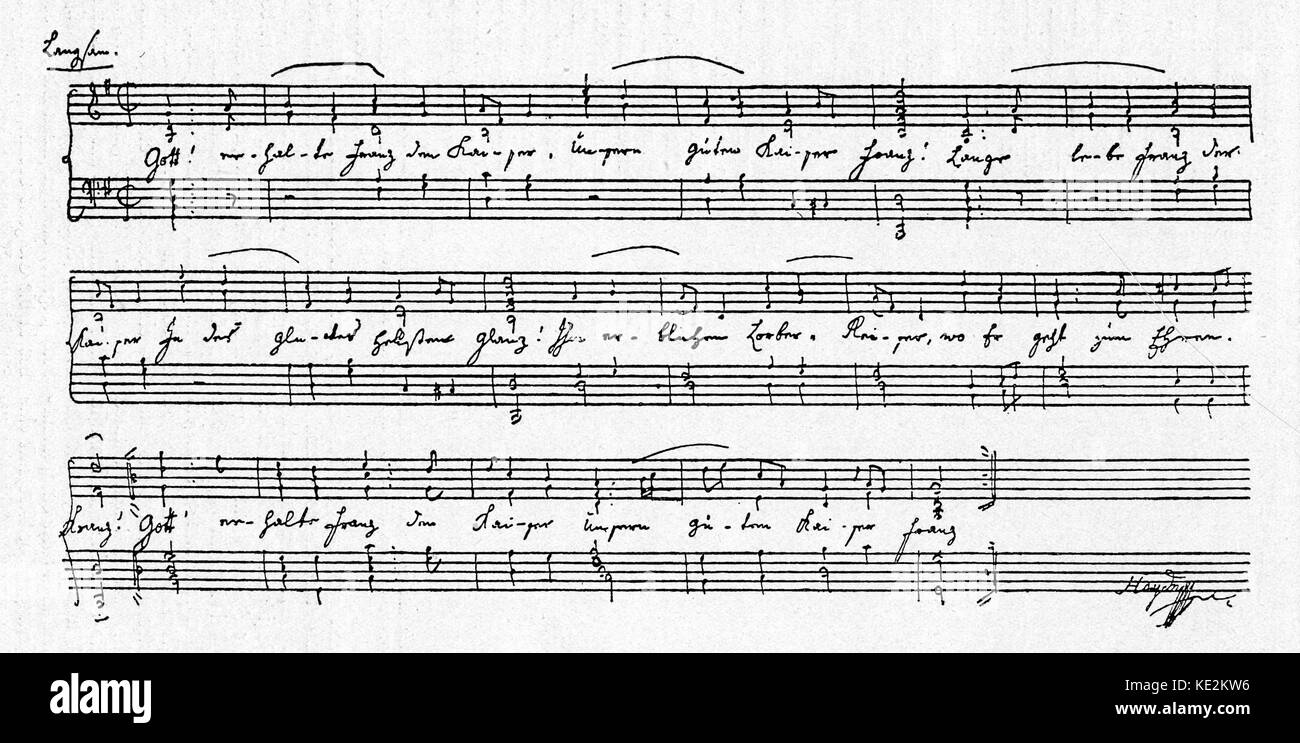 Langsam.
Gott! er-hal-te Franz den Kai-ser, Unsern guten Kai-ser Franz! Lange le-be Franz der
Kai-ser In des Glü-ckes hellsten Glanz! Ihm er-blühen Lorber-Rei-ser, wo Er geht zum Ehren.
Kranz! Gott! er-halte Franz den Kai-ser Unsern gu-ten Kai-ser Franz
Haydn
alamy stock photo
KE2KW6
www.alamy.com